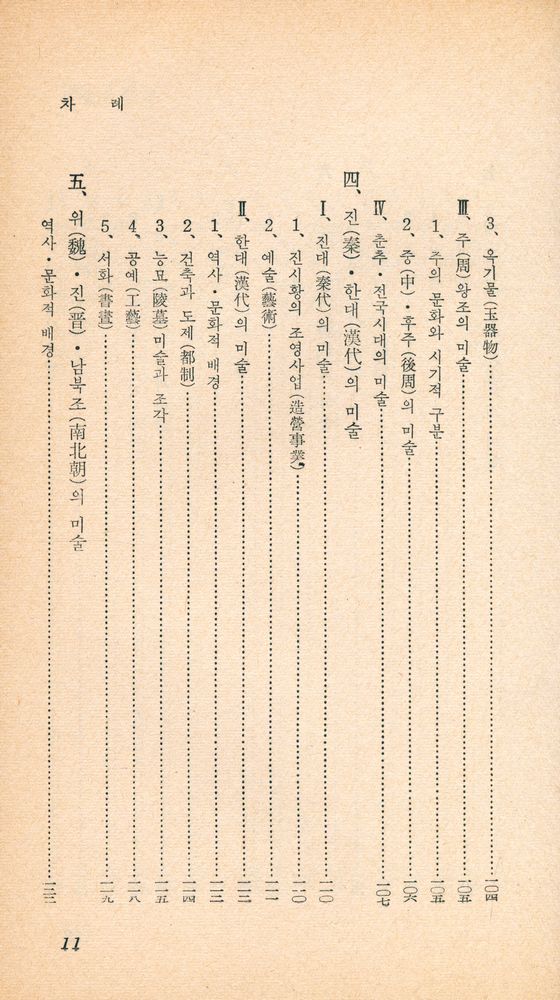 차 례
3、옥기물(玉器物)……一〇四
Ⅲ、주(周)왕조의 미술……一〇五
1、주의 문화와 시기적 구분……一〇五
2、중(中)·후주(後周)의 미술……一〇六
Ⅳ、춘추·전국시대의 미술……一〇七
四、진(秦)·한대(漢代)의 미술
Ⅰ、진대(秦代)의 미술……一一〇
1、진시황의 조영사업(造營事業)……一一〇
2、예술(藝術)……一一一
Ⅱ、한대(漢代)의 미술……一一二
1、역사·문화적 배경……一一二
2、건축과 도제(都制)……一一四
3、능묘(陵墓)미술과 조각……一一五
4、공예(工藝)……一一八
5、서화(書畫)……一一九
五、위(魏)·진(晋)·남북조(南北朝)의 미술
역사·문화적 배경……一二二
11